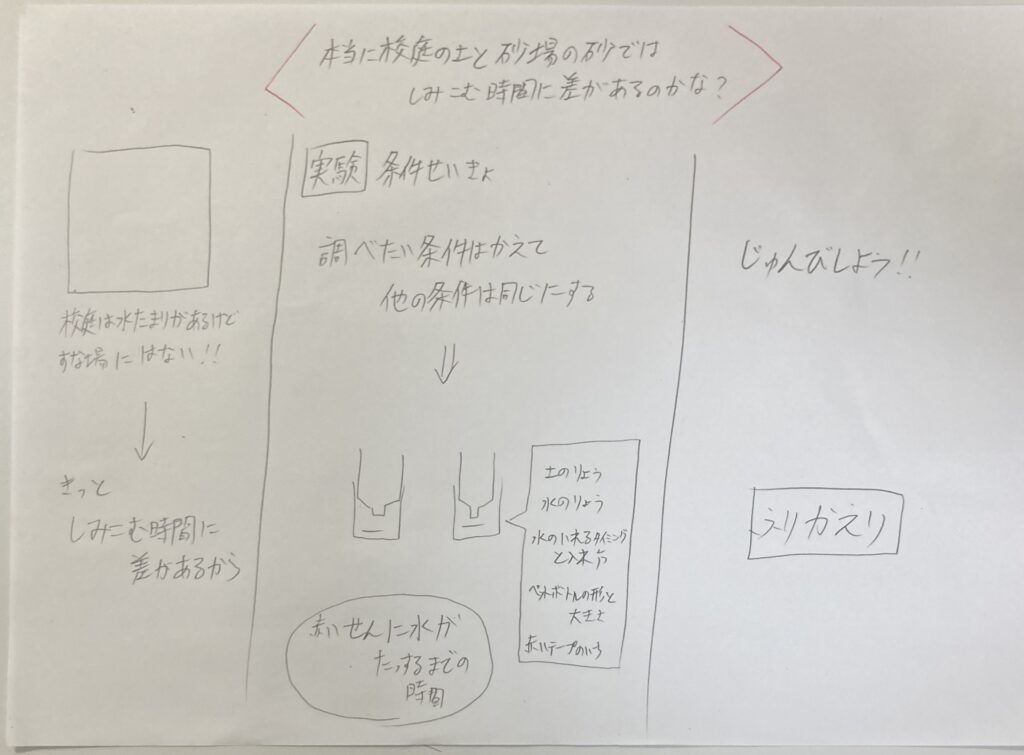 本当に校庭の土と砂場の砂では
しみこむ時間に差があるのかな？
校庭は水たまりがあるけど
すな場にはない!!
きっと
しみこむ時間に
差があるから
実験 条件せいぎょ
調べたい条件はかえて
他の条件は同じにする
土のりょう
水のりょう
水の入れるタイミング
と入れ方
ペットボトルの形と
大きさ
赤いテープのいち
赤いせんに水が
たっするまでの
時間
じゅんびしよう!!
ふりかえり